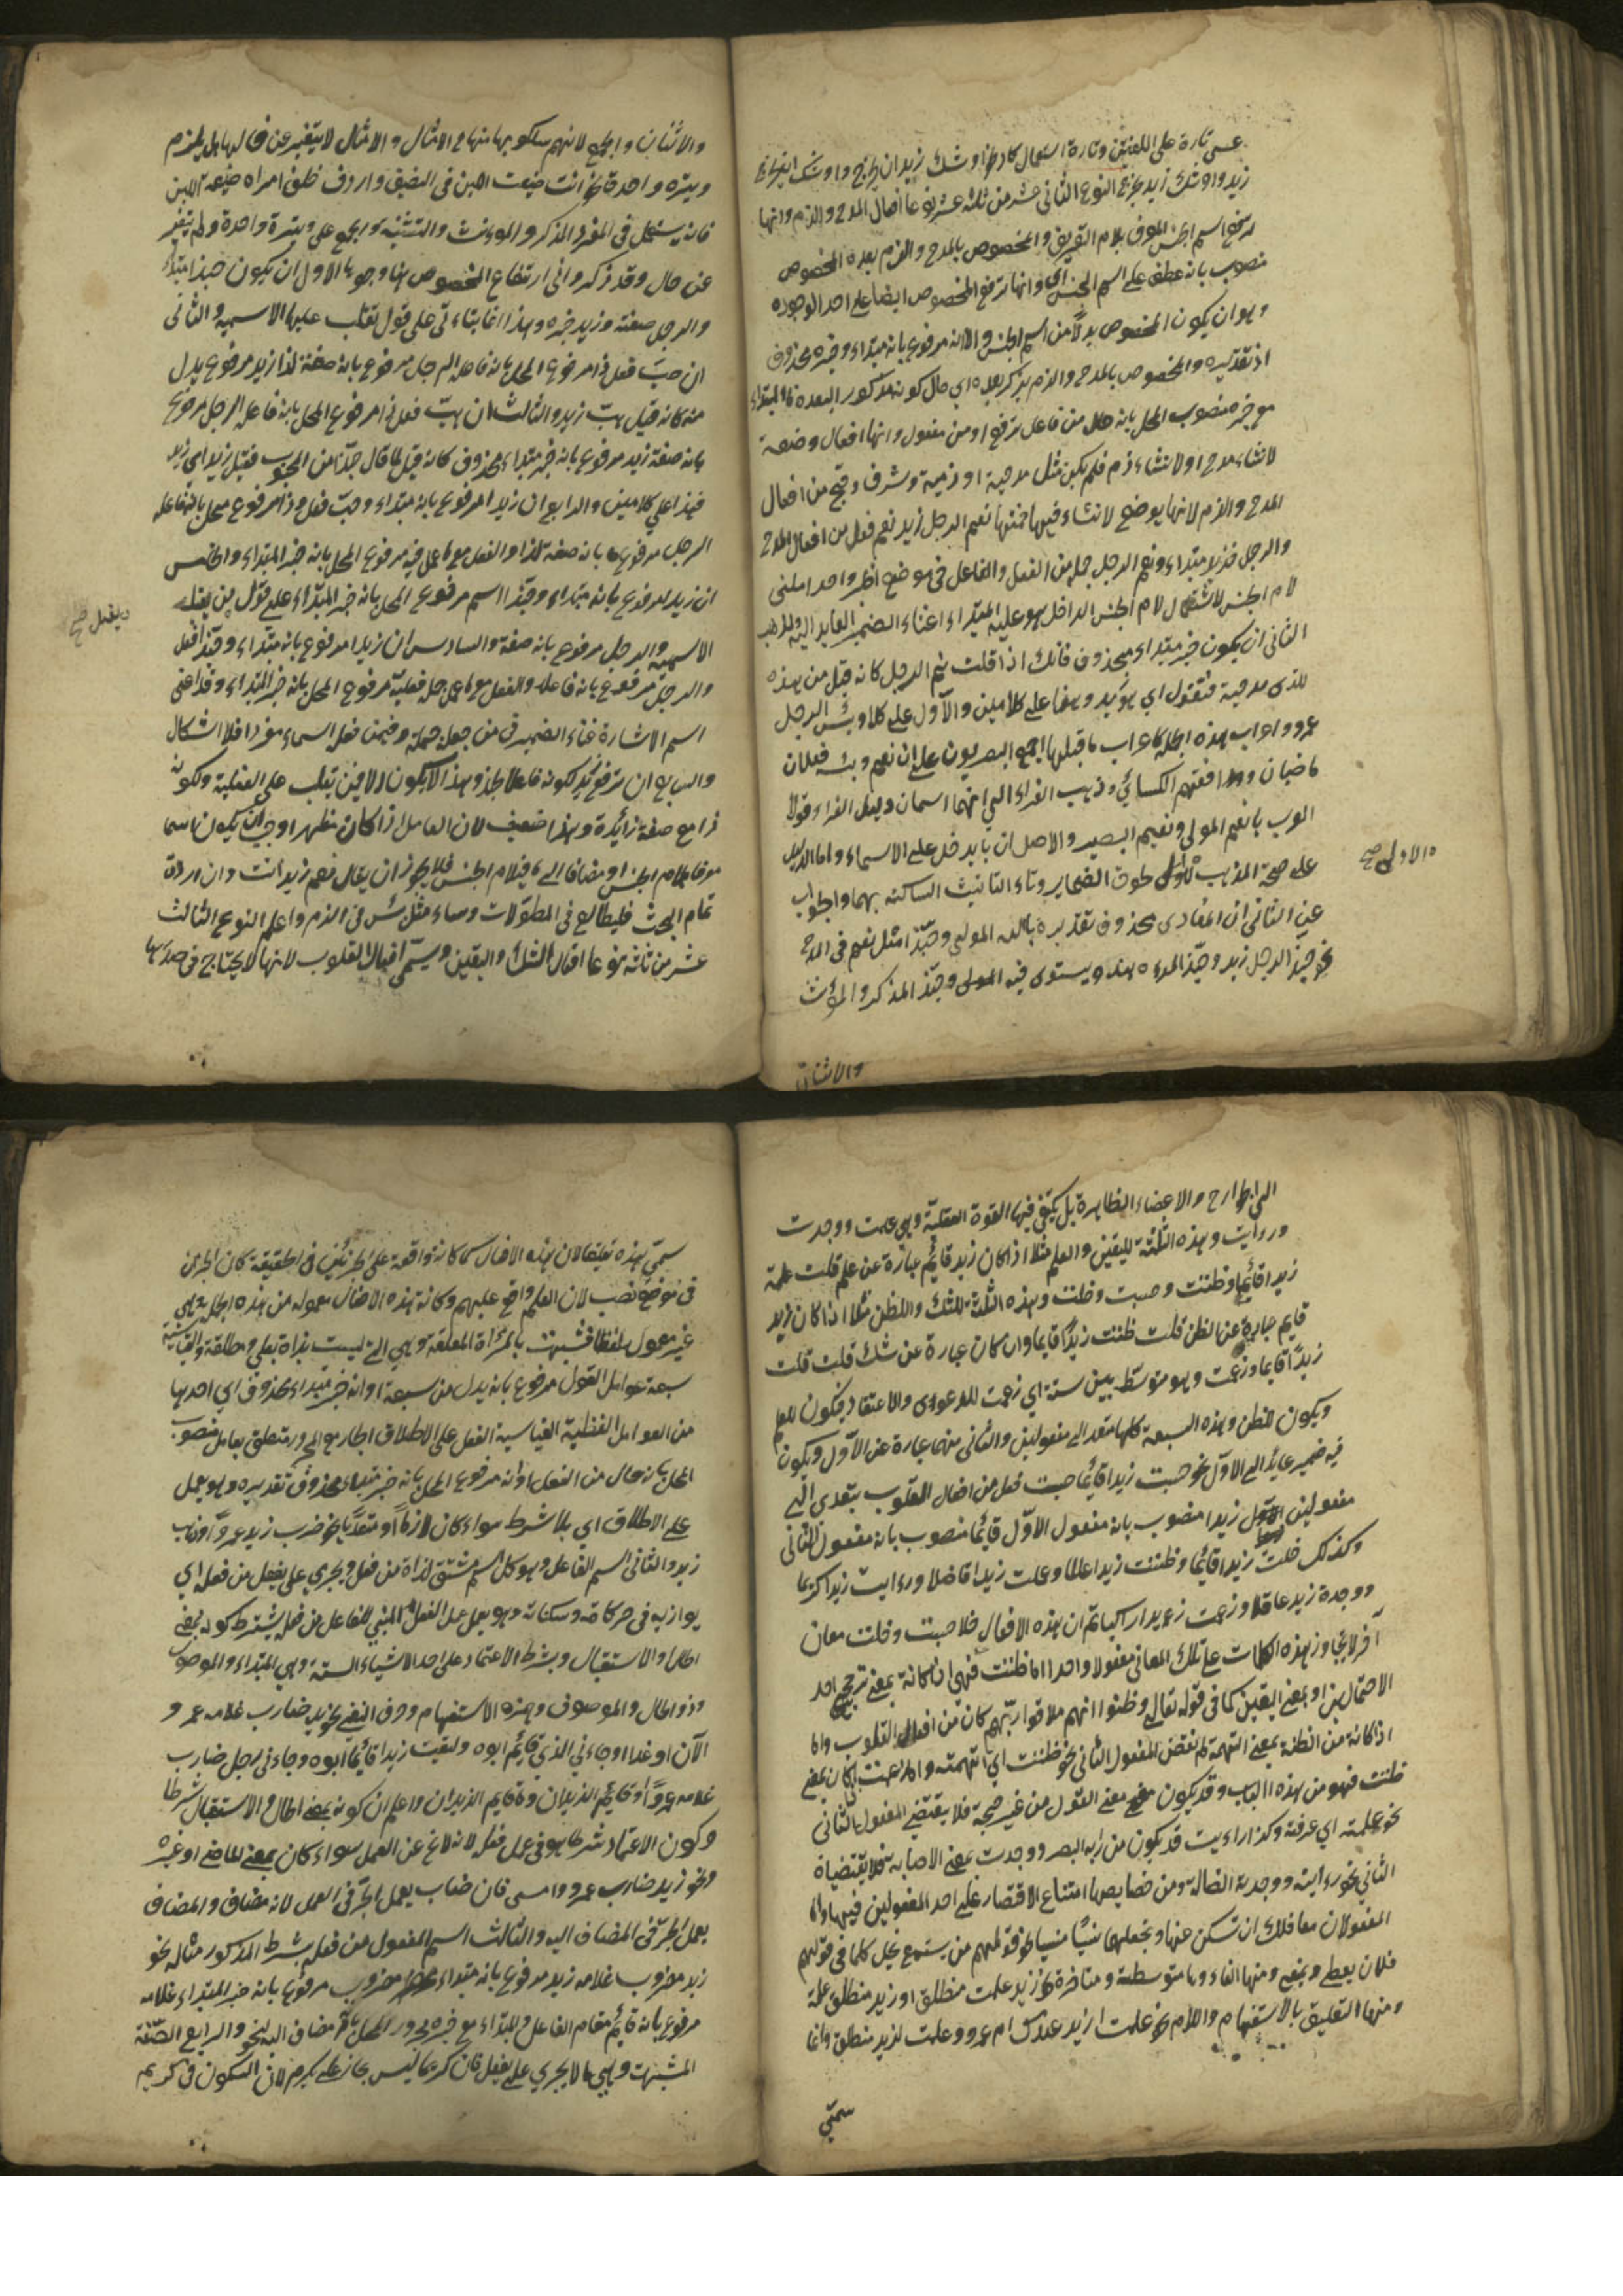 عسى تارة على اللغتين وتارة استعمال كاد نحو اوشك زيد ان يخرج واوشك ان يخرج
زيد واوشك زيد يخرج النوع الثانى عشر من ثلثة عشر نوعا افعال المدح والذم وانها
ترفع اسم الجنس المعرف بلام التعريف والمخصوص بالمدح والذم بعده المخصوص
منصوب بانه عطف على اسم الجنس اى وانها ترفع المخصوص ايضا على احد الوجوه
وهو ان يكون المخصوص بدلا من اسم الجنس والا انه مرفوع بانه مبتداء وخبره محذوف
اذ تقديره والمخصوص بالمدح والذم يذكر بعده اى حال كونه مذكور البعده فالمبتداء
مع خبره منصوب المحل بانه حال من فاعل ترفع او من مفعول وانها افعال وضعت
لانشاء مدح او لانشاء ذم فلم يكن مثل مدحته او ذممته وشرف وقبح من افعال
المدح والذم لانها يوضع لانشاء فيها فمنها نعم الرجل زيد نعم فعل من افعال المدح
والرجل فزيد مبتداء ونعم الرجل جملة من الفعل والفاعل فى موضع اخر واحد املنى
لام الجنس لاشتمال لام الجنس الداخل هو عليه المبتداء اغناء الضمير العايد اليه والمذهب
الثانى ان يكون خبر مبتداء محذوف فانك اذا قلت نعم الرجل كانه قيل من هذه
للذى مدحته فتقول اى هو زيد وهما على كلامين والاول على كلام وبئس الرجل
عمرو واعراب هذه الجملة كاعراب ما قبلها اجمع البصريون على ان نعم وبئس فعلان
ماضيان ووافقهم الكسائى وذهب الفراء الى انهما اسمان ودليل الفراء قول
العرب يا نعم المولى ونعيم البصير والاصل ان يا يدخل على الاسماء واما الدليل
على صحة المذهب الاول لحوق الضماير وتاء التانيث الساكنة بهما والجواب
والاولى صح
عن الثانى ان المنادى محذوف تقديره يا الله المولى وحبذا مثل نعم فى المدح
نحو حبذا الرجل زيد وحبذا المرءة هند ويستوى فيه المولى وحبذا المذكر والمؤنث
والاثنان
والاثنان والجمع لانهم سلكوا بها منهاج الامثال والامثال لا يتغير عن حالها بل يلزم
وتيره واحدة نحو انت ضيعت اللبن فى الصيف واردف طلق امراه ضيعة اللبن
فانه يستعمل فى المفرد المذكر والمؤنث والتثنية والجمع على وتيرة واحدة ولم يتغير
عن حال وقد ذكروا فى ارتفاع المخصوص بها وجوها الاول ان يكون حبذا مبتداء
والرجل صفته وزيد خبره وهذا انما يتاءتى على قول تغلب عليها الاسمية والثانى
ان حب فعل ذا مرفوع المحل بانه فاعله الرجل مرفوع بانه صفة لذا زيد مرفوع بدل
منه كانه قيل حب زيد والثالث ان حب فعل ذا مرفوع المحل بانه فاعل الرجل مرفوع
بانه صفة زيد مرفوع بانه خبر مبتداء محذوف كانه قيل لما قال حبذا من المحبوب فقيل زيد اى هو زيد
فهذا على كلامين والرابع ان زيدا مرفوع بانه مبتداء وحب فعل وذا مرفوع محل بانه فاعله
الرجل مرفوع بانه صفة لذا والفعل مع ما عمل فيه مرفوع المحل بانه خبر المبتداء والخامس
ان زيد مرفوع بانه مبتداء وحبذا اسم مرفوع المحل بانه خبر المبتداء على قول من يقلب
ويقبل صح
الاسمية والرجل مرفوع بانه صفة والسادس ان زيدا مرفوع بانه مبتداء وحبذا فعل
والرجل مرفوع بانه فاعله والفعل مع ما عمل جملة فعلية مرفوع المحل بانه خبر المبتداء وقد اغنى
اسم الاشارة غناء الضمير فى من جعله جملة وفيمن فعله اسماء مفردا فلا اشكال
والسابع ان ترفع زيد لكونه فاعلا لحبذ وهذا لا يكون الا لمن يغلب على الفعلية ولكونه
ذا مع صفة زائدة وهذا ضعيف لان العامل اذا كان مظهرا وجب ان يكون اسما
معرفا بلام الجنس او مضافا الى ما فيه لام الجنس فلا يجوز ان يقال نعم زيد انت وان اردت
تمام البحث فليطالع فى المطولات وساء مثل بئس فى الذم واعلم النوع الثالث
عشر من ثلثة نوعا افعال الشك واليقين ويسمى افعال القلوب لانها لا يحتاج فى صدرها
الى الجوارح والاعضاء الظاهرة بل يكتفى فيها القوة العقلية وهى علمت ووجدت
ورءايت وهذه الثلثة لليقين والعلم مثلا اذا كان زيد قائم عبارة عن علم قلت علمت
زيدا قائما وظننت وحسبت وخلت وهذه الثلثة للشك والظن مثلا اذا كان زيد
قايم عبارة عن الظن قلت ظننت زيدا قايما وان كان عبارة عن شك قلت قلت
زيدا قايما وزعمت وهو متوسط بين ستة اى زعمت للدعوى والاعتقاد فيكون للعلم
ويكون للظن وهذه السبعة كلها متعد الى مفعولين والثانى منهما عبارة عن الاول ويكون
فيه ضمير عايد الى الاول نحو حسبت زيدا قائما حسبت فعل من افعال القلوب يتعدى الى
مفعولين الاول زيدا منصوب بانه مفعول الاول قائما منصوب بانه مفعول الثانى
وكذلك خلت زيدا قائما وظننت زيدا عالما وعلمت زيدا فاضلا ورءايت زيدا كريما
ووجدة زيد عاقلا وزعمت زيدا راكبا ثم ان هذه الافعال خلا حسبت وخلت معان
آخر لا يتجاوز هذه الكلمات على تلك المعانى مفعولا واحدا اما ظننت فهى ان كانة بمعنى ترجح احد
الاحتمالين او بمعنى اليقين كما فى قوله تعالى وظنوا انهم ملاقوا ربهم كان من افعال القلوب واما
اذا كانة من الظنة بمعنى التهمة لم يقتض المفعول الثانى نحو ظننت اى اتهمته واما زعمت ان كان بمعنى
ظننت فهو من هذه الباب وقد يكون بمعنى القول من غير صحة فلا يقتضى المفعول الثانى
نحو علمته اى عرفته وكذا راءيت قد يكون من رايه البصر ووجدت بمعنى الاصابة فلا يقتضياة
الثانى نحو رءايته ووجدته الضالة ومن خصايصها امتناع الاقتصار على احد المفعولين فيها واما
المفعولان معا فلك ان تسكن عنها وتجعلهما نسيا منسيا نحو قولهم من يسمع يخل كما فى قولهم
فلان يعطى ويمنع ومنها الغاء وها متوسطة ومتاخرة نحو زيد علمت منطلق او زيد منطلق علمت
ومنها التعليق بالاستفهام واللام نحو علمت ازيد عندك ام عمرو وعلمت لزيد منطلق وانما
سمى
سمى هذه تعليقا لان هذه الافعال كما كانة واقعة على الجزئين فى الحقيقة كان الجزئى
فى موضع نصب لان العلم واقع عليهم وكانة هذه الافعال معمولة من هذه الجملة وهى
غير معمول لفظا فشبهت بالمراة المعلقة وهى التى ليست بذاة بعل ومطلقة والقياسية
سبعة عوامل القول مرفوع بانه بدل من سبعة او انه خبر مبتداء محذوف اى احدها
من العوامل اللفظية القياسية الفعل على الاطلاق الجار مع المجرور متعلق بعامل منصوب
المحل بانه حال من الفعل او انه مرفوع المحل بانه خبر مبتداء محذوف تقديره وهو يعمل
على الاطلاق اى بلا شرط سواء كان لازما او متعديا نحو ضرب زيد عمروا وذهب
زيد والثانى اسم الفاعل وهو كل اسم مشتق لذاة من فعل ويجرى على يفعل من فعله اى
يوازيه فى حركاته وسكناته وهو يعمل عمل الفعل المبنى للفاعل من فعله بشرط كونه بمعنى
الحال والاستقبال وبشرط الاعتماد على احد الاشياء الستة وهى المبتداء والموصول
وذو الحال والموصوف وهمزة الاستفهام وحرف النفى نحو زيد ضارب غلامه عمرو
الآن او غدا وجاءنى الذى قائم ابوه ولقيت زيدا قائما ابوه وجاءنى رجل ضارب
غلامه عمروا او قائم الزيدان وما قايم الزيدان واعلم ان كونه بمعنى الحال والاستقبال شرطا
وكون الاعتماد شرطا هو فى عمل فعله لا نه لاغ عن العمل سواء كان بمعنى الماضى او غيره
ونحو زيد ضارب عمرو وامس فان ضارب يعمل الجر فى العمل لانه مضاف والمضاف
يعمل الجر فى المضاف اليه والثالث اسم المفعول من فعله بشرط المذكور مثاله نحو
زيد مضروب غلامه زيد مرفوع بانه مبتداء مضروب مرفوع بانه خبر المبتداء غلامه
مرفوع بانه قائم مقام الفاعل والمبتداء مع خبره مجرور المحل بانه مضاف اليه لنحو والرابع الصفة
المشبهة وهى ما لا يجرى على يفعل فان كريما ليس بجار على يكرم لان السكون فى كريم